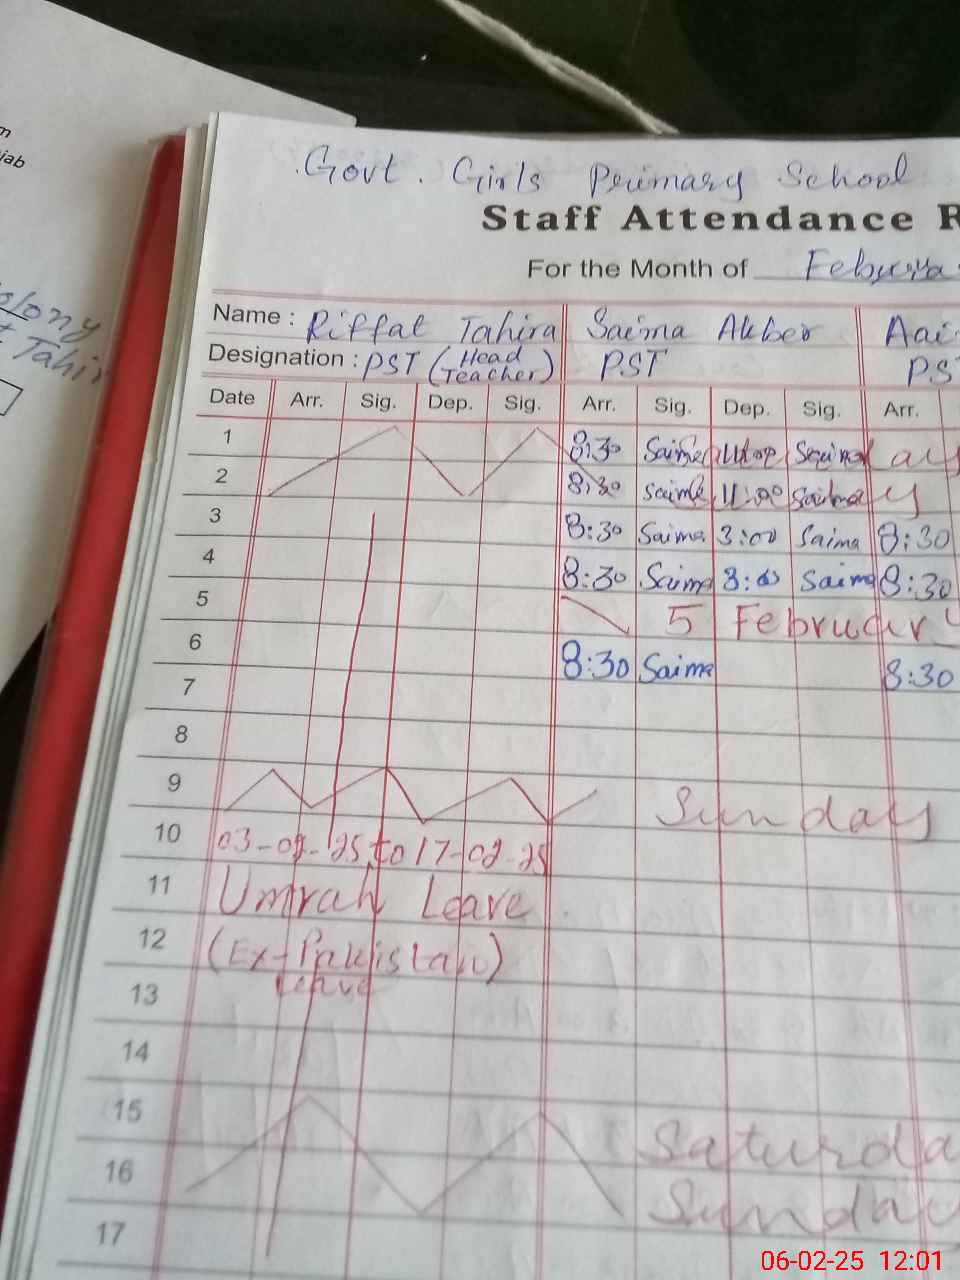 m
jab
olony
Tahir
Govt. Girls Primary School
Staff Attendance R
For the Month of
Name : Riffat Tahira Saima Akber Aai
Designation : PST (Head Teacher) PST PST
Date Arr. Sig. Dep. Sig. Arr. Sig. Dep. Sig. Arr.
1 8:30 Saima
2 8:30 Saima 11:00 Saima
3 8:30 Saima 3:00 Saima 8:30
4 8:30 Saima 3:00 Saima 8:30
5 5 February
6 8:30 Saima 8:30
7
8
9 Sunday
10 03-02-25 to 17-02-25
11 Umrah Leave
12 (Ex-Pakistan)
leave
13
14
15 Saturda
16 Sunday
17
06-02-25 12:01